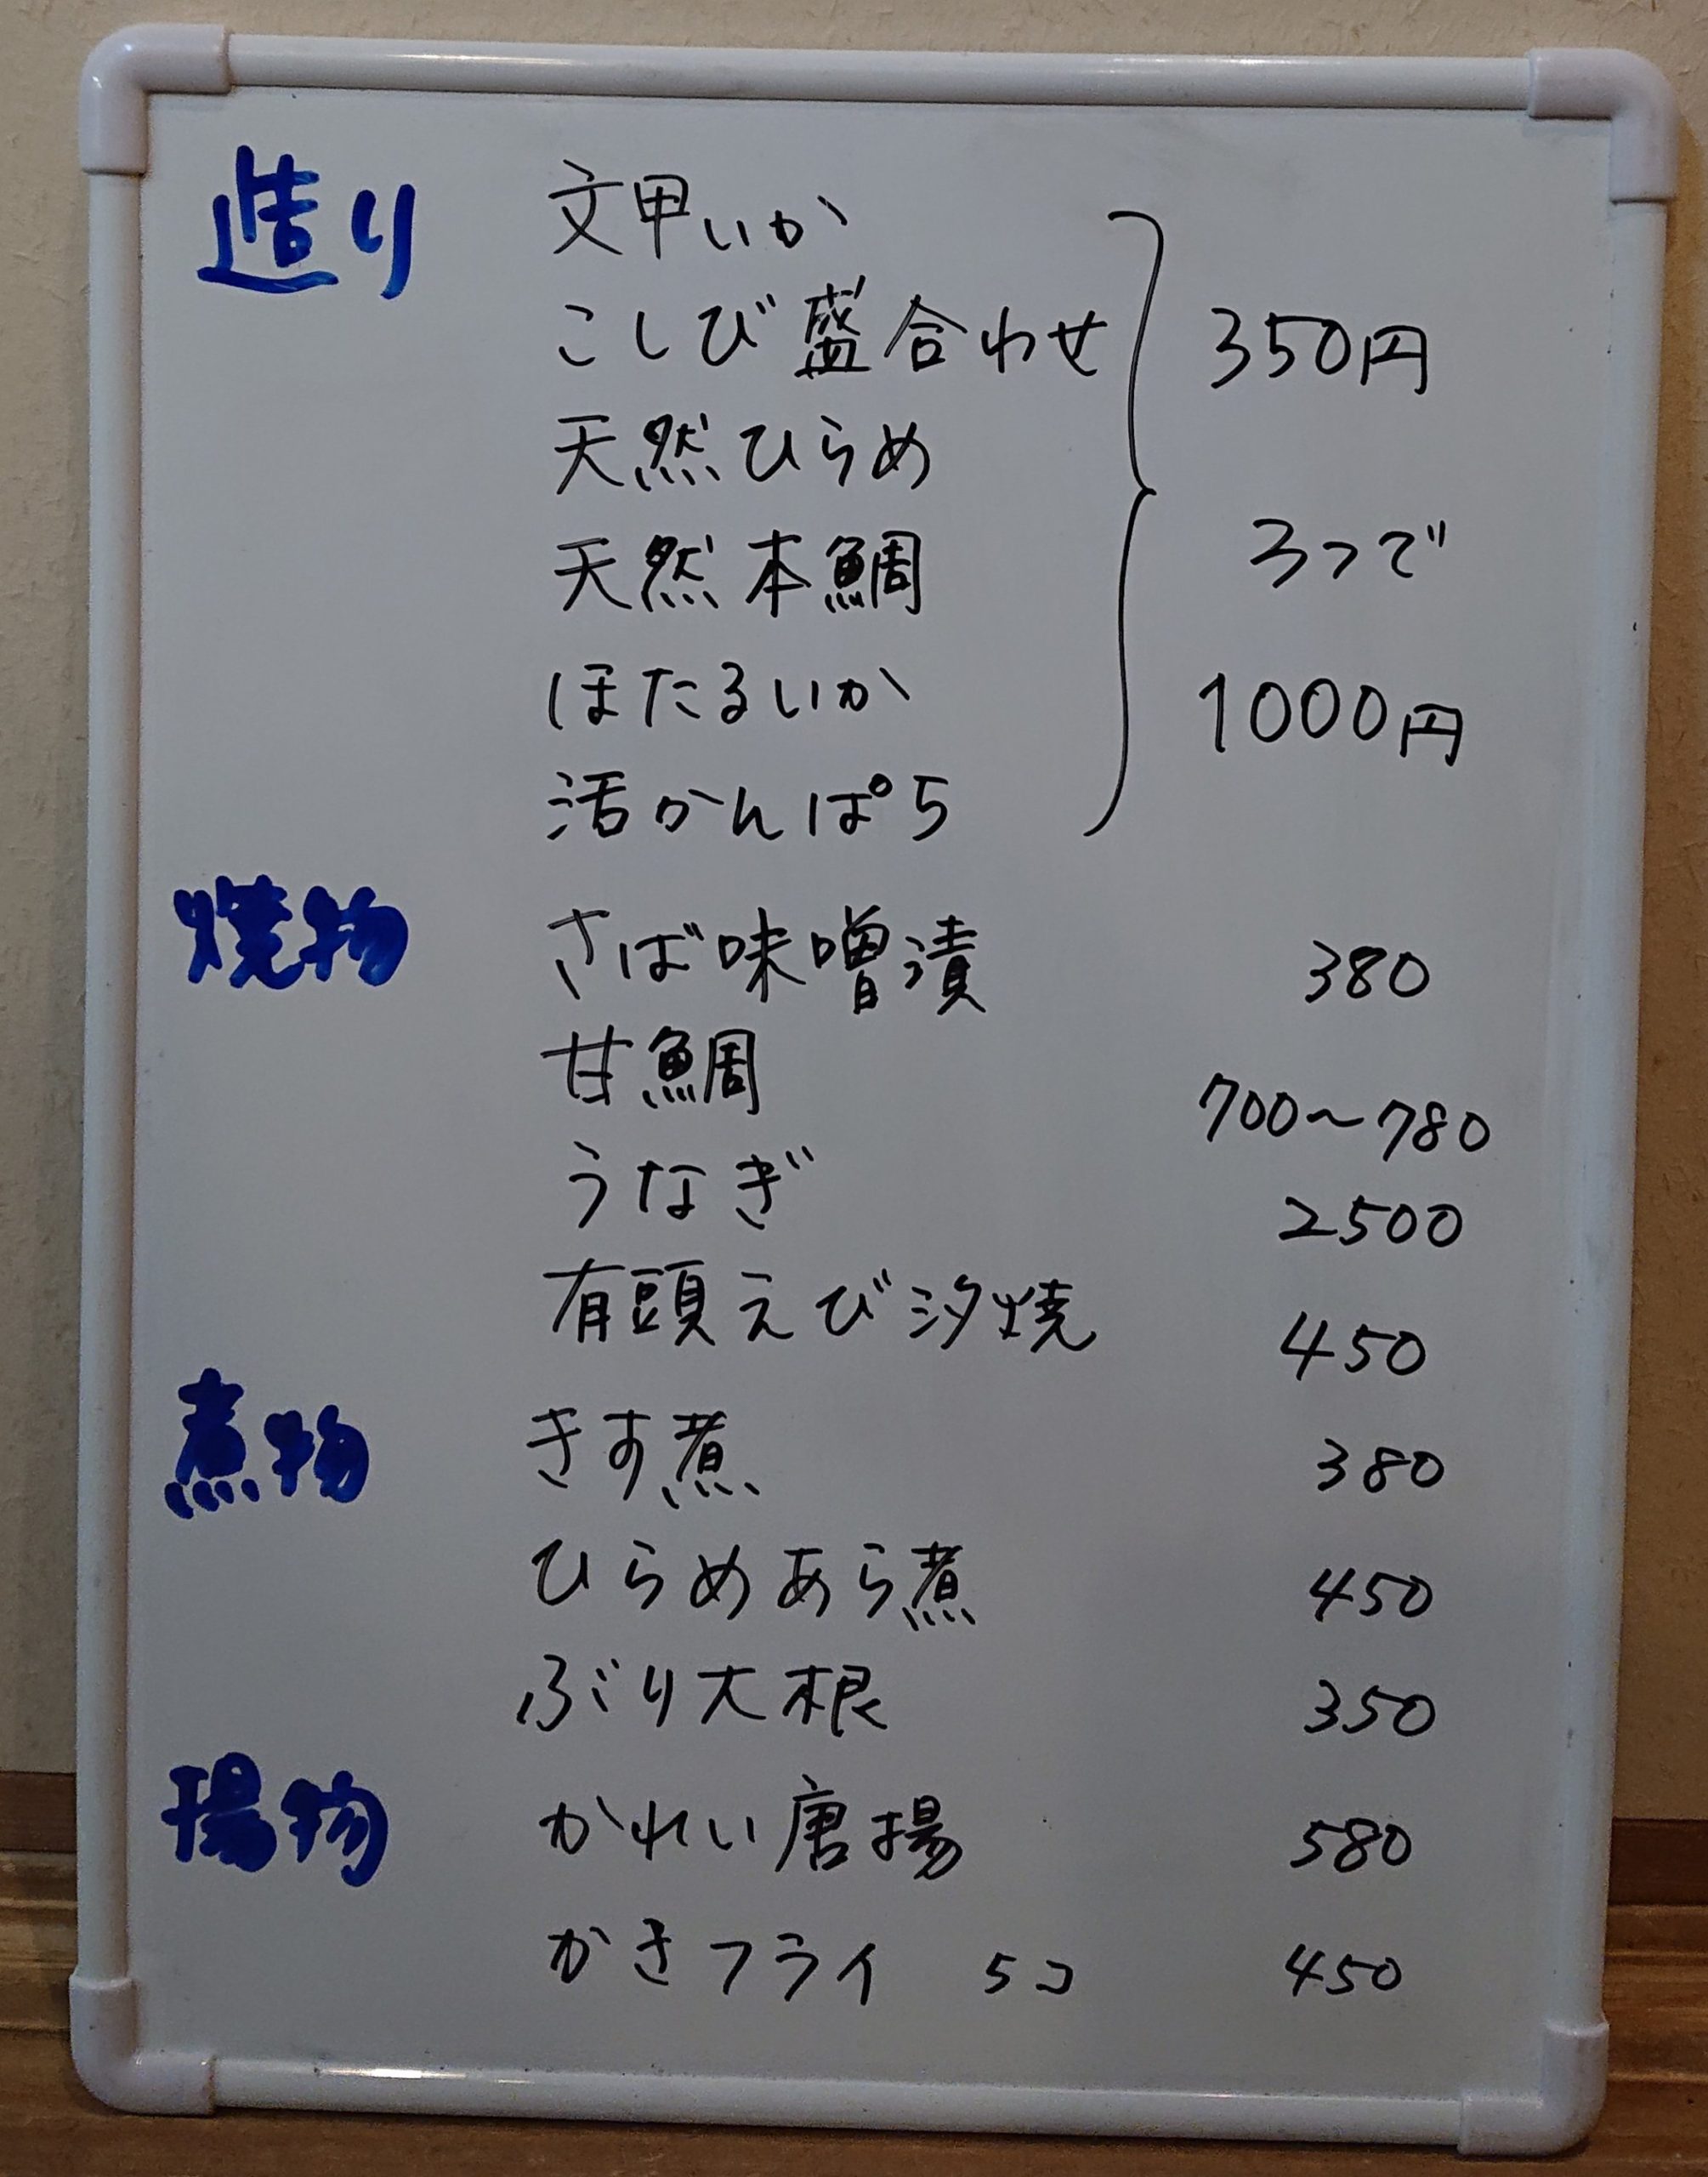 造り 文甲いか
こしび盛合わせ 350円
天然ひらめ
天然本鯛 3つで
ほたるいか 1000円
活かんぱち
焼物 さば味噌漬 380
甘鯛 700～780
うなぎ 2500
有頭えび汐焼 450
煮物 きす煮 380
ひらめあら煮 450
ぶり大根 350
揚物 かれい唐揚 580
かきフライ 5コ 450